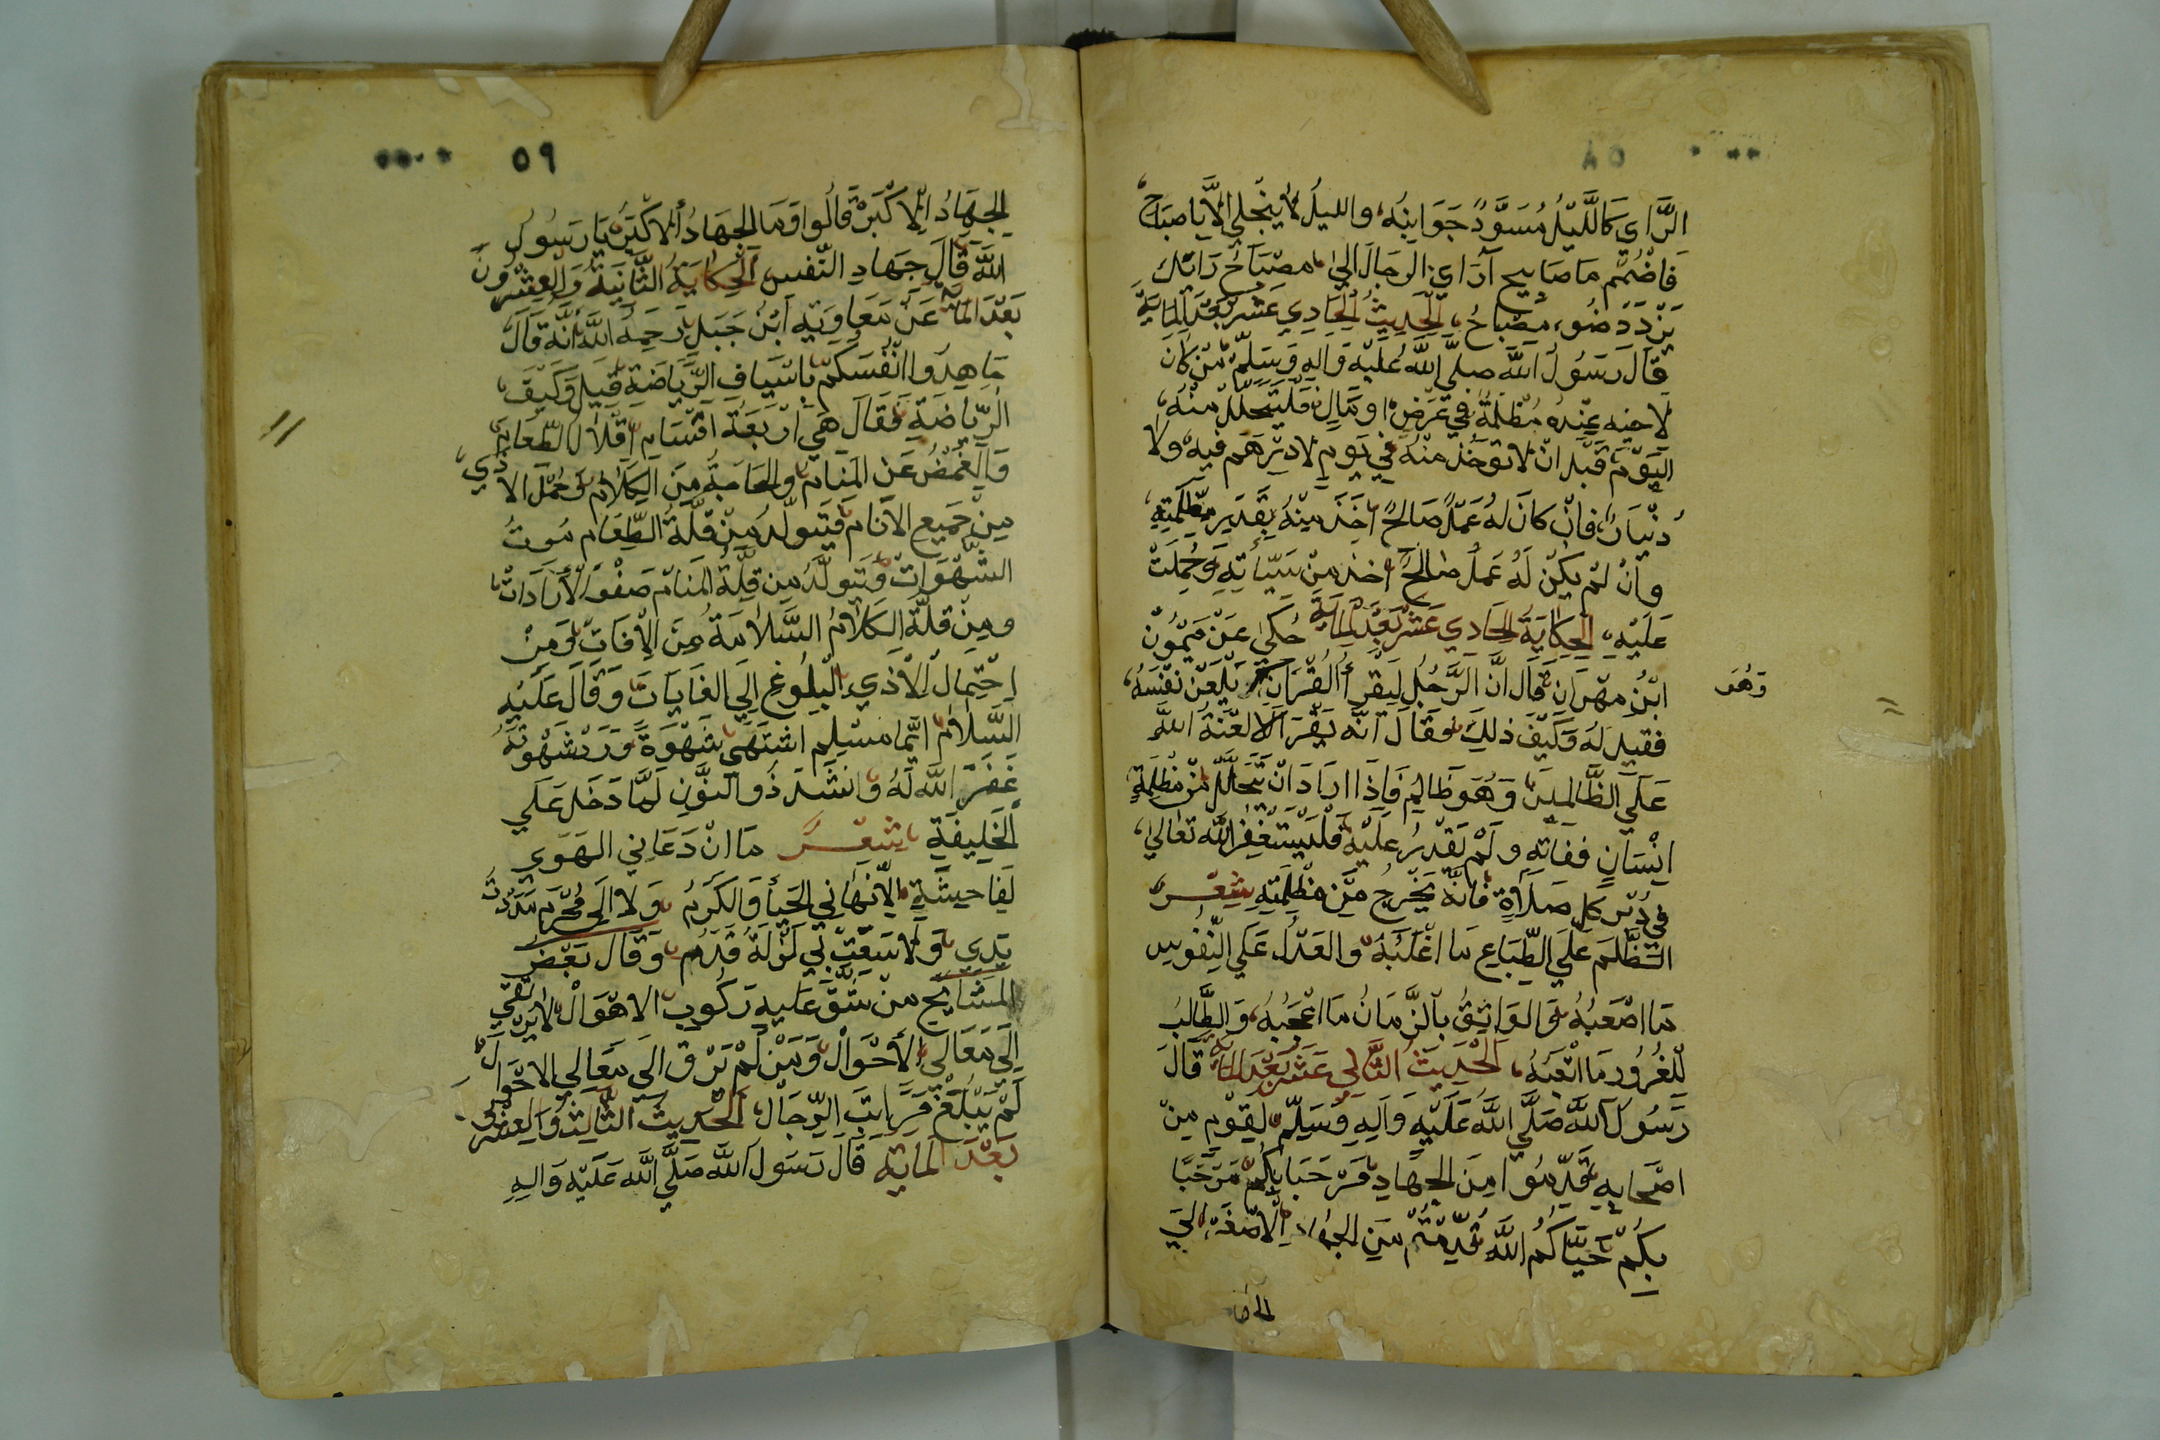 ٥٨
الرَّايِ كَاللَّيْلُ مُسَوَّدً جَوَانِبُه، والليلُ لاَ ينْجَلي الاَّ ياصبَاحٌ
فَاضْمُمْ مَصَابِيح آرَاي الرجَالَ الي مصْبَاحُ رَايِكَ
يَزْدَدْ ضُو، مصْبَاحُ، الْحَدِيثُ الْحَادِي عَشَر بَعْدَ الْمَايَةِ
قَالَ رَسَوُلُ اللَّهَ صلَّي اللَّهُ عَلَيْهِ وَالِهِ وَسَلِّمْ مَنْ كَانَ
لاخيه عِنْدهُ مُظْلَمةُ في عَرَضٍ او مَالٍ فلْيَتَحَلَّلُ منْهُ،
الْيَوْمَ قَبْلَ انْ لاتؤخَذُ منْهُ في يَوم لا دِرْهَم فيهِ وَلا
دُنْيَارُ، فانْ كانَ لهُ عَمَلٌ صَالحٌ اُخَذَ مِنْهُ بقَدَرِ مظْلَمتِهِ،
وانْ لمْ يكنْ لَهُ عَمَلُ صَالحُ اخذ مِنْ سَيّئآتِهِ وَحُمِلَتْ
عَلَيْهِ، الْحِكَايَةُ الْحَادِي عَشَر بَعْدَ الْمَايَةِ حُكيَ عَنْ مَيْمُوُنْ
ابْنُ مهْرَانِ قَال انَّ الرَّجُلِ لَيَقْرأُ الْقُرْانِ يَلْعَنْ نفْسَهُ،
وَهُوَ
فقيلَ لهُ وَكَيْفَ ذلِكَ فقَالَ انَّه يَقْرَ الاَ لعْنَةُ اللَّه
عَلَي الظَّالمِينَ وَهُوَ ظَالِم فَاِذَا ارَادَ انْ يَتَحَلَّلَ مِنْ مظْلمَةِ
انْسَانٍ ففاتَهِ وَلَمْ يَقْدِرُ عليْهِ فلْيَسْتَغْفِر اللَّه تعَالي،
في دُبْر كلِ صَلاَةٍ فانَّه يَخْرجُ مَنْ مظْلِمَتِهِ شِعْر
الظُّلمَ عَلَي الطِّبَاعِ مَا اغْلَبَهُ والعَدْل عَلي النِّفُوسِ
مَا اصْعَبُهُ وَالوَاثِقُ بالزَّمَانُ مَا اعْجَبُهُ، وَالطَّالبُ
لِلْغُرُورِ مَا اتْعَبَهُ، الْحَدِيثُ الثَّانِي عَشَر بَعْدَ الْمَايَةِ قَالَ
رَسُولَ اللَّهَ صَلَّي اللَّهُ عَلَيْهِ وَآلِهِ وَسَلِّمْ لِقَوْمٍ مِنْ
اصْحَابِهِ قَدِّمُوا مِنَ الْجِهَادِ مَرْحَبَا بِكُمْ مَرْحَبًا
بكُمْ حَيَّاكُم اللَّهَ قُدِّمْتُمْ مِنَ الجهَاد الْاصْغَر الَي
الجهاد
٥٩
الجِهَادُ الْاكْبَرْ قَالُوا وَمَا الجِهَادُ اْلاكْبَرُ يَا رَسُولُ
اللَّهَ قَالَ جِهَادِ النَّفْسِ الْحِكَايَةُ الثَّانِيَةُ وَالْعِشْرُونَ
بَعْدَ الْمايَة عَنْ مَعَاوِيَةِ ابْن جَبَلِ رَحِمَهُ اللَّهَ انَّه قَالَ
جَاهِدُوا انْفُسَكُمْ بِاسْيَافِ الرِّيَاضَةِ قِيلَ وَكَيْفَ
الرِّيَاضَةِ فَقَالَ هِيَ ارْبَعَةُ اقْسَامٍ اقْلالُ الطّعَامِ
وَالغُمْضُ عَن المَنَامُ والحَاجَةُ مِنَ الكَلاَمْ وَحُمَّلَ الاذِيْ،
مِنْ جَمِيعِ الاَنَامِ فَتَولَّدُ مِنْ قلَّةُ الطِّعَامِ مَوتُ
الشَّهَوَاتْ وَتَولَّدُ مِن قِلَّة المَنَامْ صَفْو الْارَادَاتْ
ومِنْ قلَّةِ الكَلاَمُ السَّلاَمَةُ مِنَ الْافَاتِ وَمِنْ
احْتِمَالُ الْاذي، الْبلُوغِ الَي الغَايَاتَ وَقَالَ عَليْهِ
السَّلاَمُ ايُّما مسْلِمٍ اشتَهَي شَهْوَةً وَرَدَّ شَهْوَتَهُ
غَفَرَ اللَّه لَهُ وانْشَدَ ذُو النُّونِ لَمَّا دَخَلَ عَلَي
الْخَلِيفَةِ شِعْرَ مَا انْ دَعَانِي الهَوي
لَفَاحِشَةٍ الاَّ نهَاني الحَيَا وَالكَرَمُ وَلاَ الَي مُحَرَّم مَدَدْتُ
يَدي وَلاَسَعَتْ بِي لَزَلَةُ قَدَمُ وَقَالَ بَعْضُ
المَشَايخ منْ شُقَّ عَليهِ رَكُوب الاهْوَالْ لاَ يَرْتَقِي
الَي مَعَالِي الْأَحْوَالْ وَمَنْ لَمْ تَرْقَ الَي مَعَالِي الاحْوَالَ
لَمْ يَبْلُغْ مَرَاتِبَ الرِّجَالْ الْحَدِيثُ الثَّالِثُ وَالعِشْرون
بَعْدَ المَايَةِ قَالَ رَسَوُلَ اللَّه صَلَّي اللَّه عَلَيْه وَالِهِ